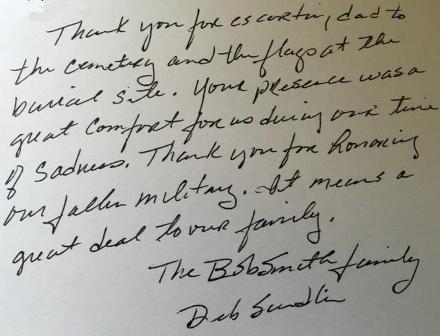 Thank you for escorting dad to
the cemetery and the flags at the
burial site. Your presence was a
great comfort for us during our time
of sadness. Thank you for honoring
our fallen military. It means a
great deal to our family.
The Bob Smith family
Deb